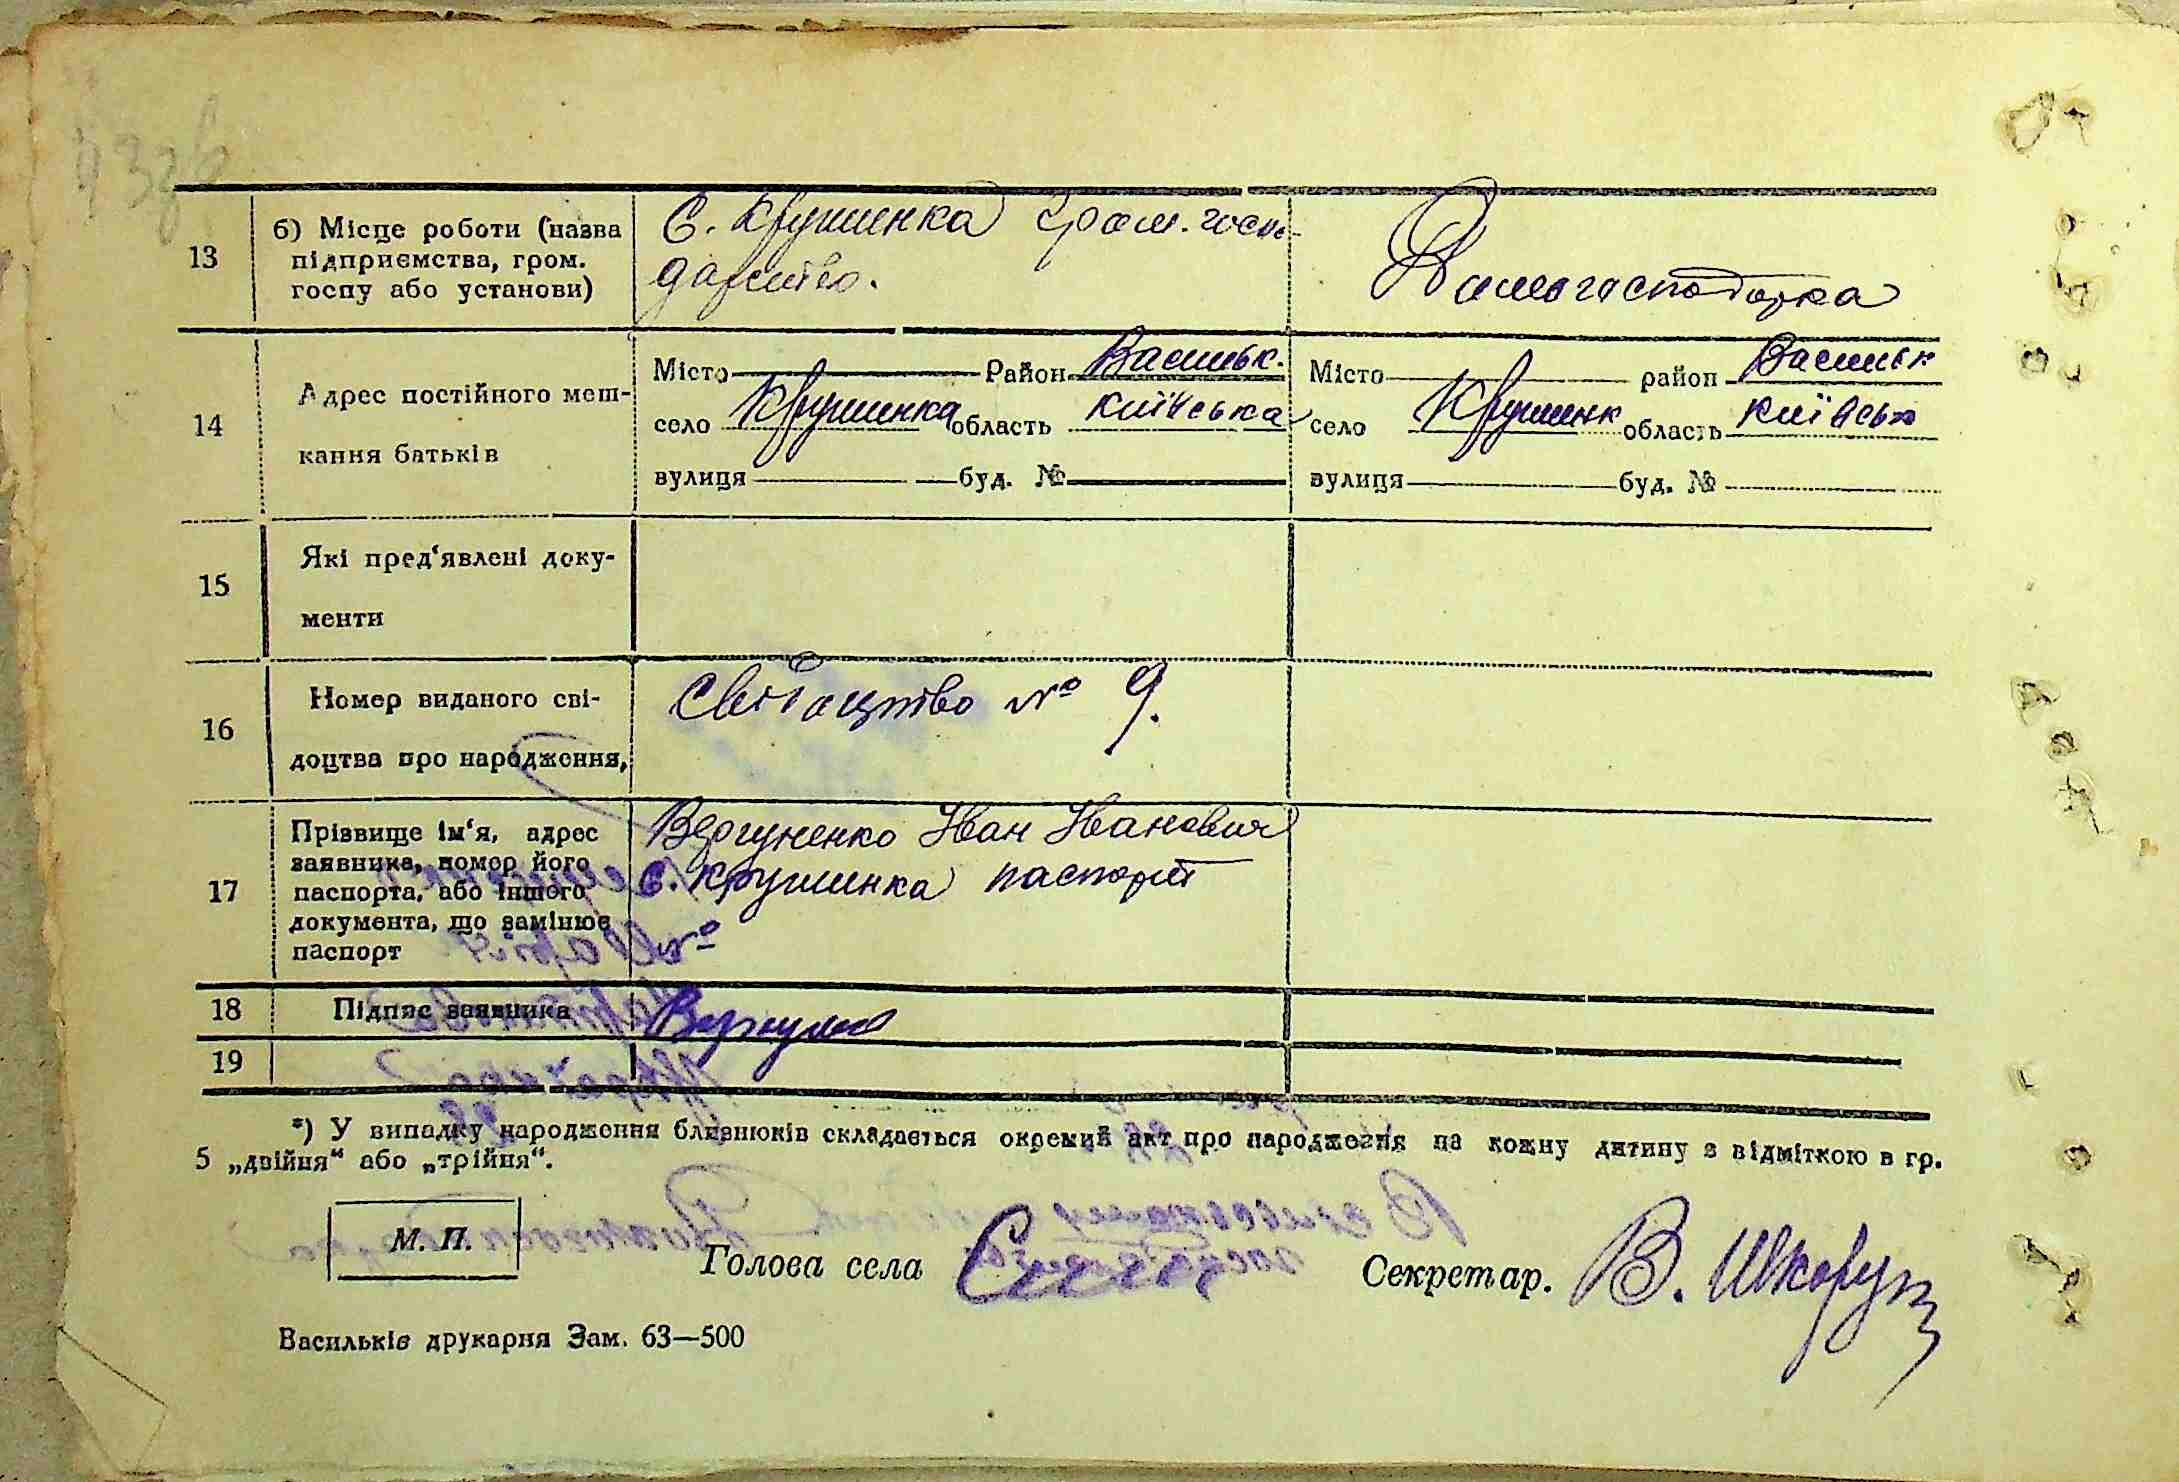 43зв
13
б) Місце роботи (назва
підприємства, гром.
госпу або установи)
С. Крушинка гром. госпо-
дарство.
Домогосподарка
14
Адрес постійного меш-
кання батьків
Місто Район Васильк.
село Крушинка область Київська
вулиця буд. №
Місто район Васильк
село Крушинк область Київськ
вулиця буд. №
15
Які пред'явлені доку-
менти
16
Номер виданого сві-
доцтва про народження,
Свідоцтво № 9.
17
Прізвище ім'я, адрес
заявника, номер його
паспорта, або іншого
документа, що замінює
паспорт
Вергуненко Іван Іванович
с. Крушинка паспорт
№
18
Підпис заявника
19
*) У випадку народження близнюків складається окремий акт про народження на кожну дитину з відміткою в гр.
5 „двійня“ або „трійня“.
М. П.
Голова села
Секретар.
Васильків друкарня Зам. 63—500